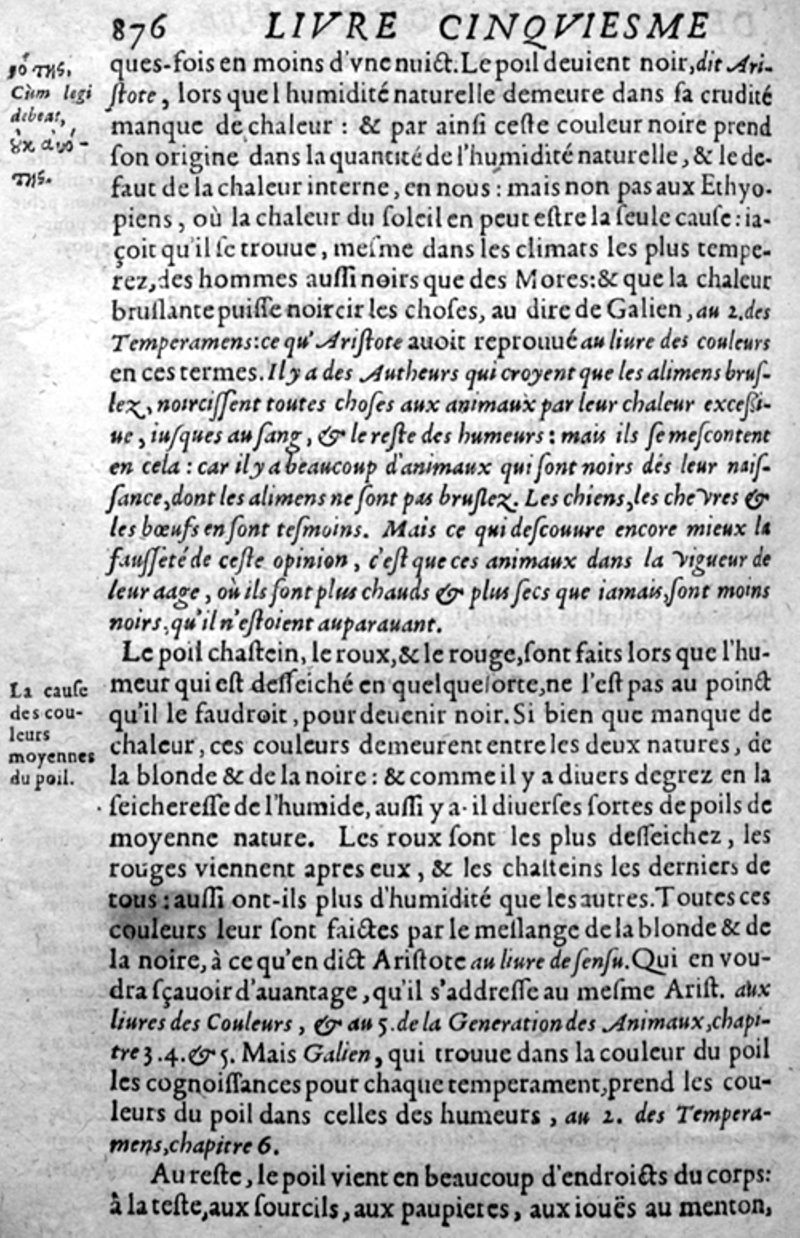 876 LIVRE CINQVIESME
ques-fois en moins d'vne nuict. Le poil deuient noir, dit Ari-
ſtote, lors que l humidité naturelle demeure dans ſa crudité
manque de chaleur : & par ainſi ceſte couleur noire prend
ſon origine dans la quantité de l'humidité naturelle, & le de-
faut de la chaleur interne, en nous : mais non pas aux Ethyo-
piens, où la chaleur du ſoleil en peut eſtre la ſeule cauſe : ia-
çoit qu'il ſe trouue, meſme dans les climats les plus tempe-
rez, des hommes auſſi noirs que des Mores : & que la chaleur
bruſlante puiſſe noircir les choſes, au dire de Galien, au 2. des
Temperamens : ce qu'Ariſtote auoit reprouué au liure des couleurs
en ces termes. Il y a des Autheurs qui croyent que les alimens bruſ-
lez, noirciſſent toutes choſes aux animaux par leur chaleur exceſſi-
ue, iuſques au ſang, & le reſte des humeurs : mais ils ſe meſcontent
en cela : car il y a beaucoup d'animaux qui ſont noirs dés leur naiſ-
ſance, dont les alimens ne ſont pas bruſlez. Les chiens, les cheVres &
les bœufs en ſont teſmoins. Mais ce qui deſcouure encore mieux la
fauſſeté de ceſte opinion, c'eſt que ces animaux dans la Vigueur de
leur aage, où ils ſont plus chauds & plus ſecs que iamais, ſont moins
noirs, qu'il n'eſtoient auparauant.
Le poil chaſtein, le roux, & le rouge, ſont faits lors que l'hu-
meur qui eſt deſſeiché en quelque ſorte, ne l'eſt pas au poinct
qu'il le faudroit, pour deuenir noir. Si bien que manque de
chaleur, ces couleurs demeurent entre les deux natures, de
la blonde & de la noire : & comme il y a diuers degrez en la
ſeichereſſe de l'humide, auſſi y a-il diuerſes ſortes de poils de
moyenne nature. Les roux ſont les plus deſſeichez, les
rouges viennent apres eux, & les chaſteins les derniers de
tous : auſſi ont-ils plus d'humidité que les autres. Toutes ces
couleurs leur ſont faictes par le meſlange de la blonde & de
la noire, à ce qu'en dict Ariſtote au liure de ſenſu. Qui en vou-
dra ſçauoir d'auantage, qu'il s'addreſſe au meſme Ariſt. aux
liures des Couleurs, & au 5. de la Generation des Animaux, chapi-
tre 3. 4. & 5. Mais Galien, qui trouue dans la couleur du poil
les cognoiſſances pour chaque temperament, prend les cou-
leurs du poil dans celles des humeurs, au 2. des Tempera-
mens, chapitre 6.
Au reſte, le poil vient en beaucoup d'endroicts du corps :
à la teſte, aux ſourcils, aux paupieres, aux iouës au menton,
Cùm legi
debeat,
La cauſe
des cou-
leurs
moyennes
du poil.